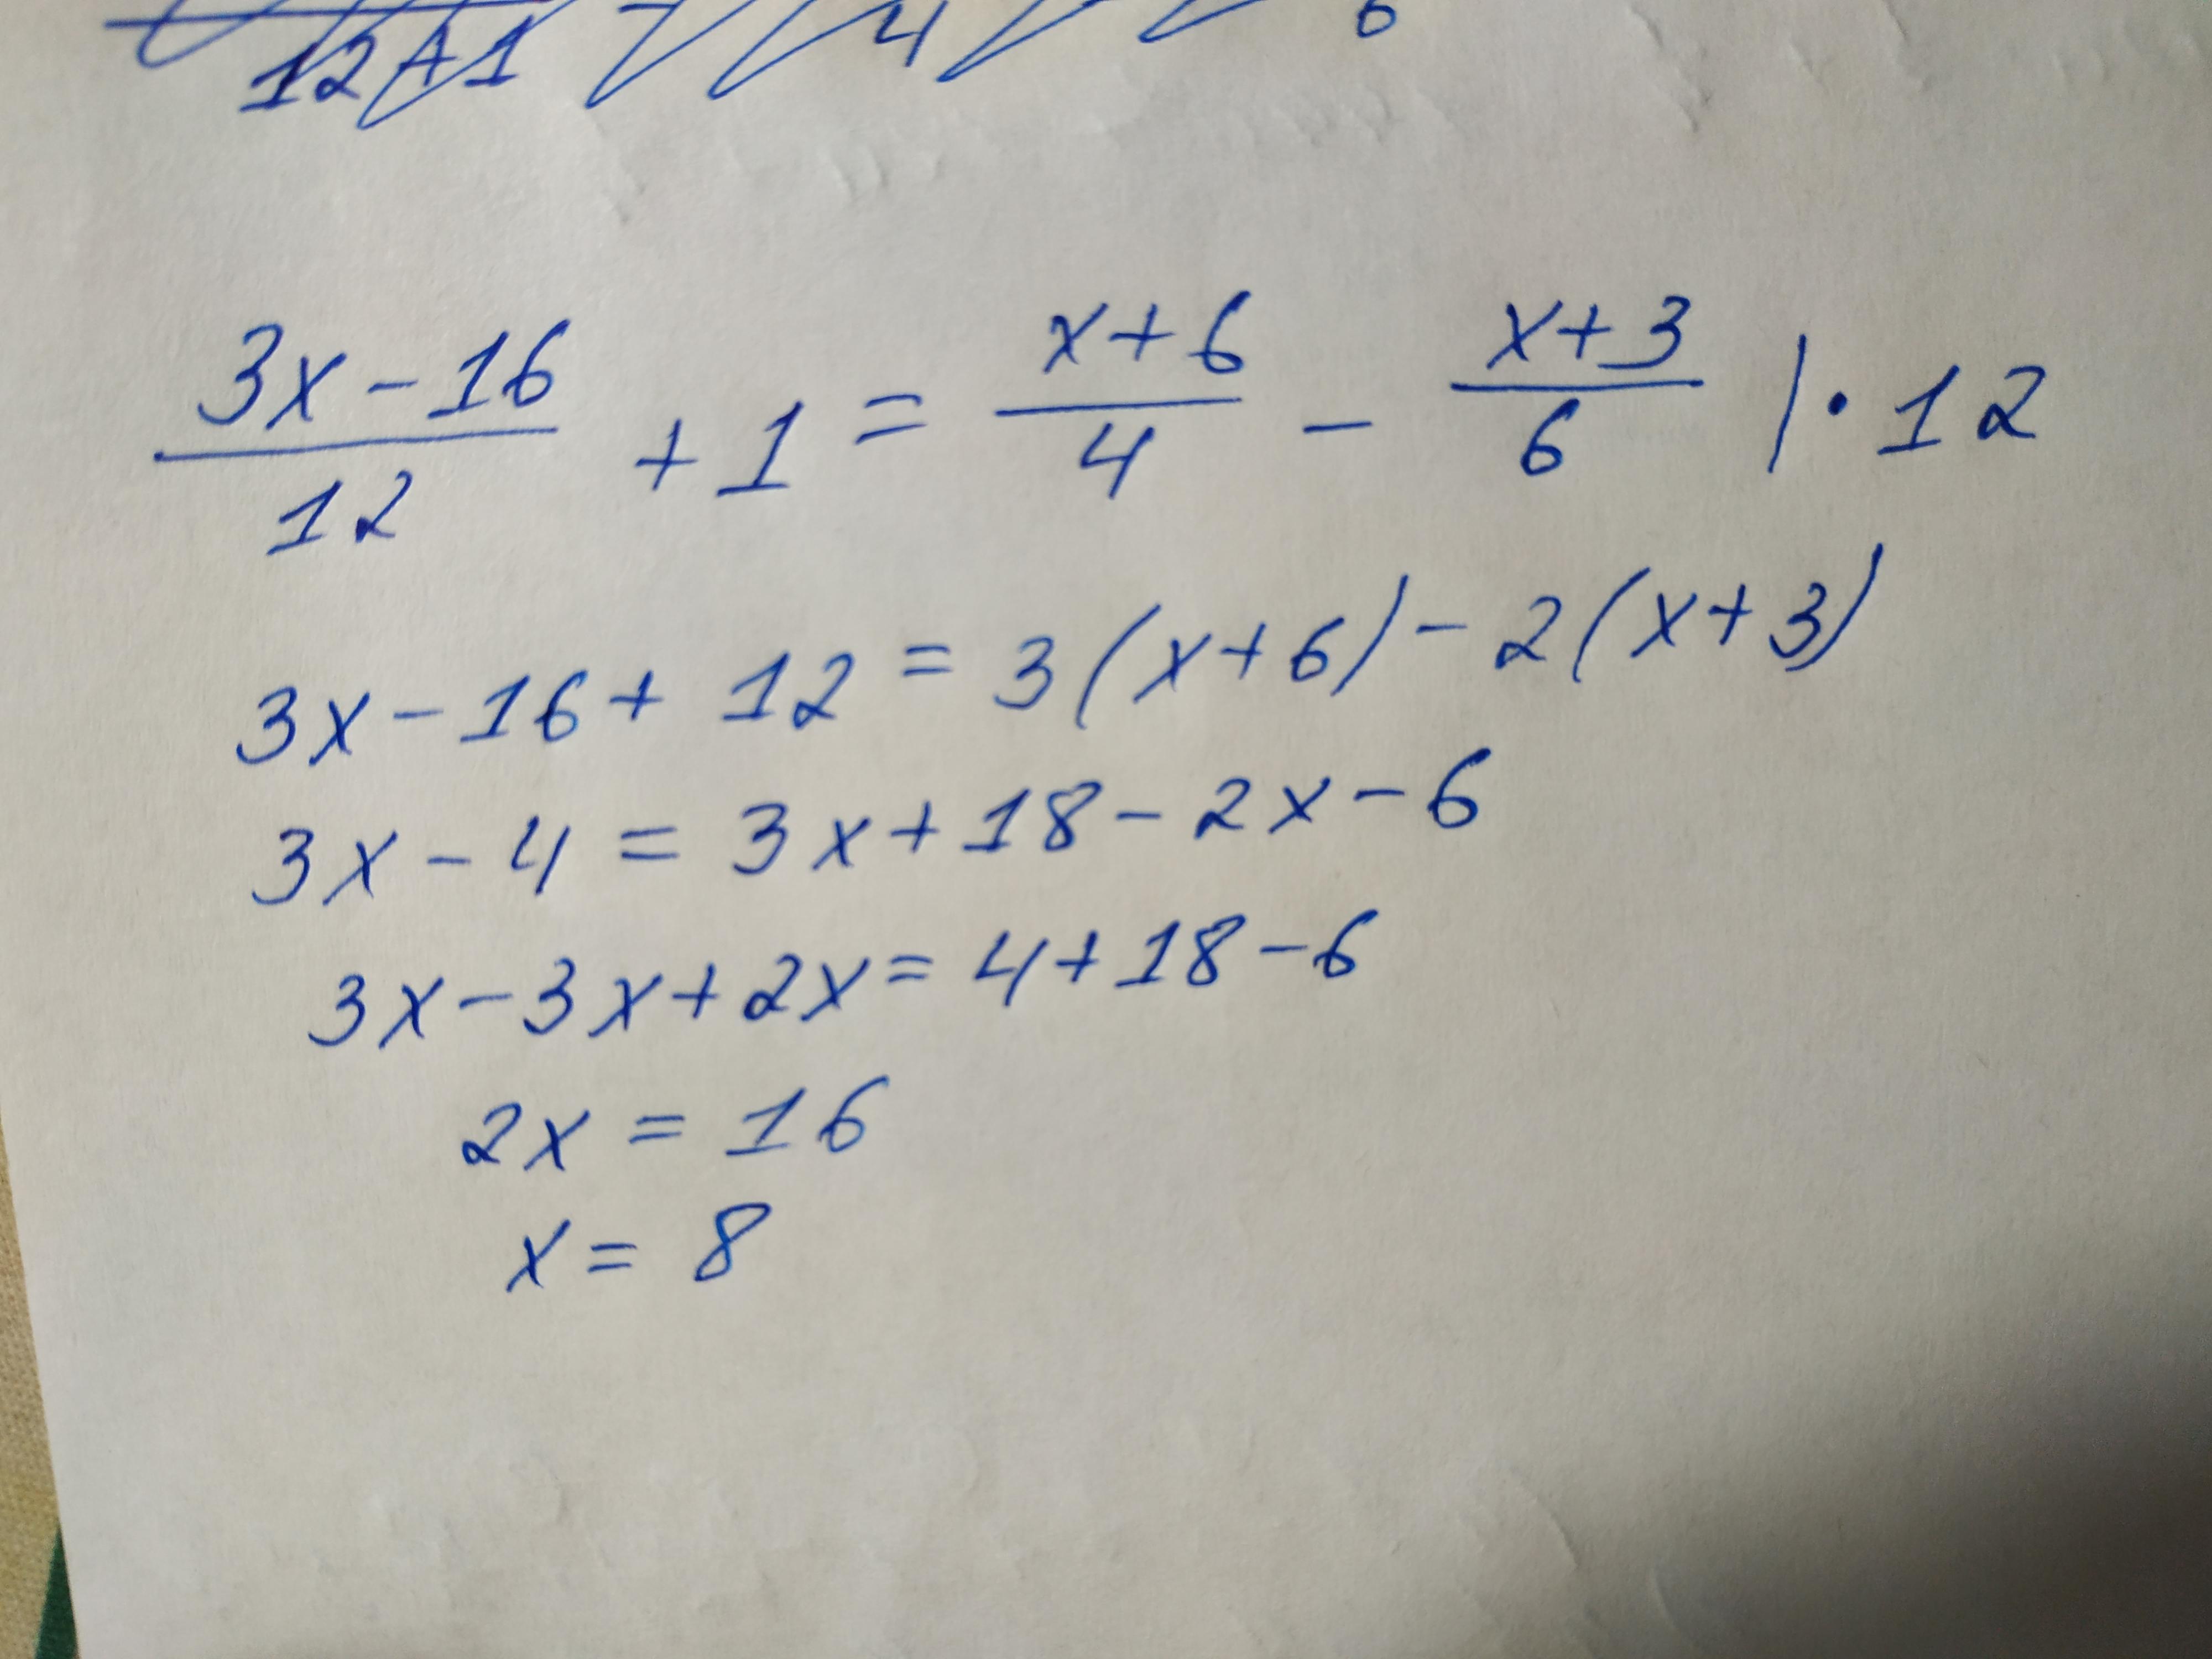 12+1 4 6
(3x-16)/12 + 1 = (x+6)/4 - (x+3)/6 | · 12
3x - 16 + 12 = 3(x+6) - 2(x+3)
3x - 4 = 3x + 18 - 2x - 6
3x - 3x + 2x = 4 + 18 - 6
2x = 16
x = 8